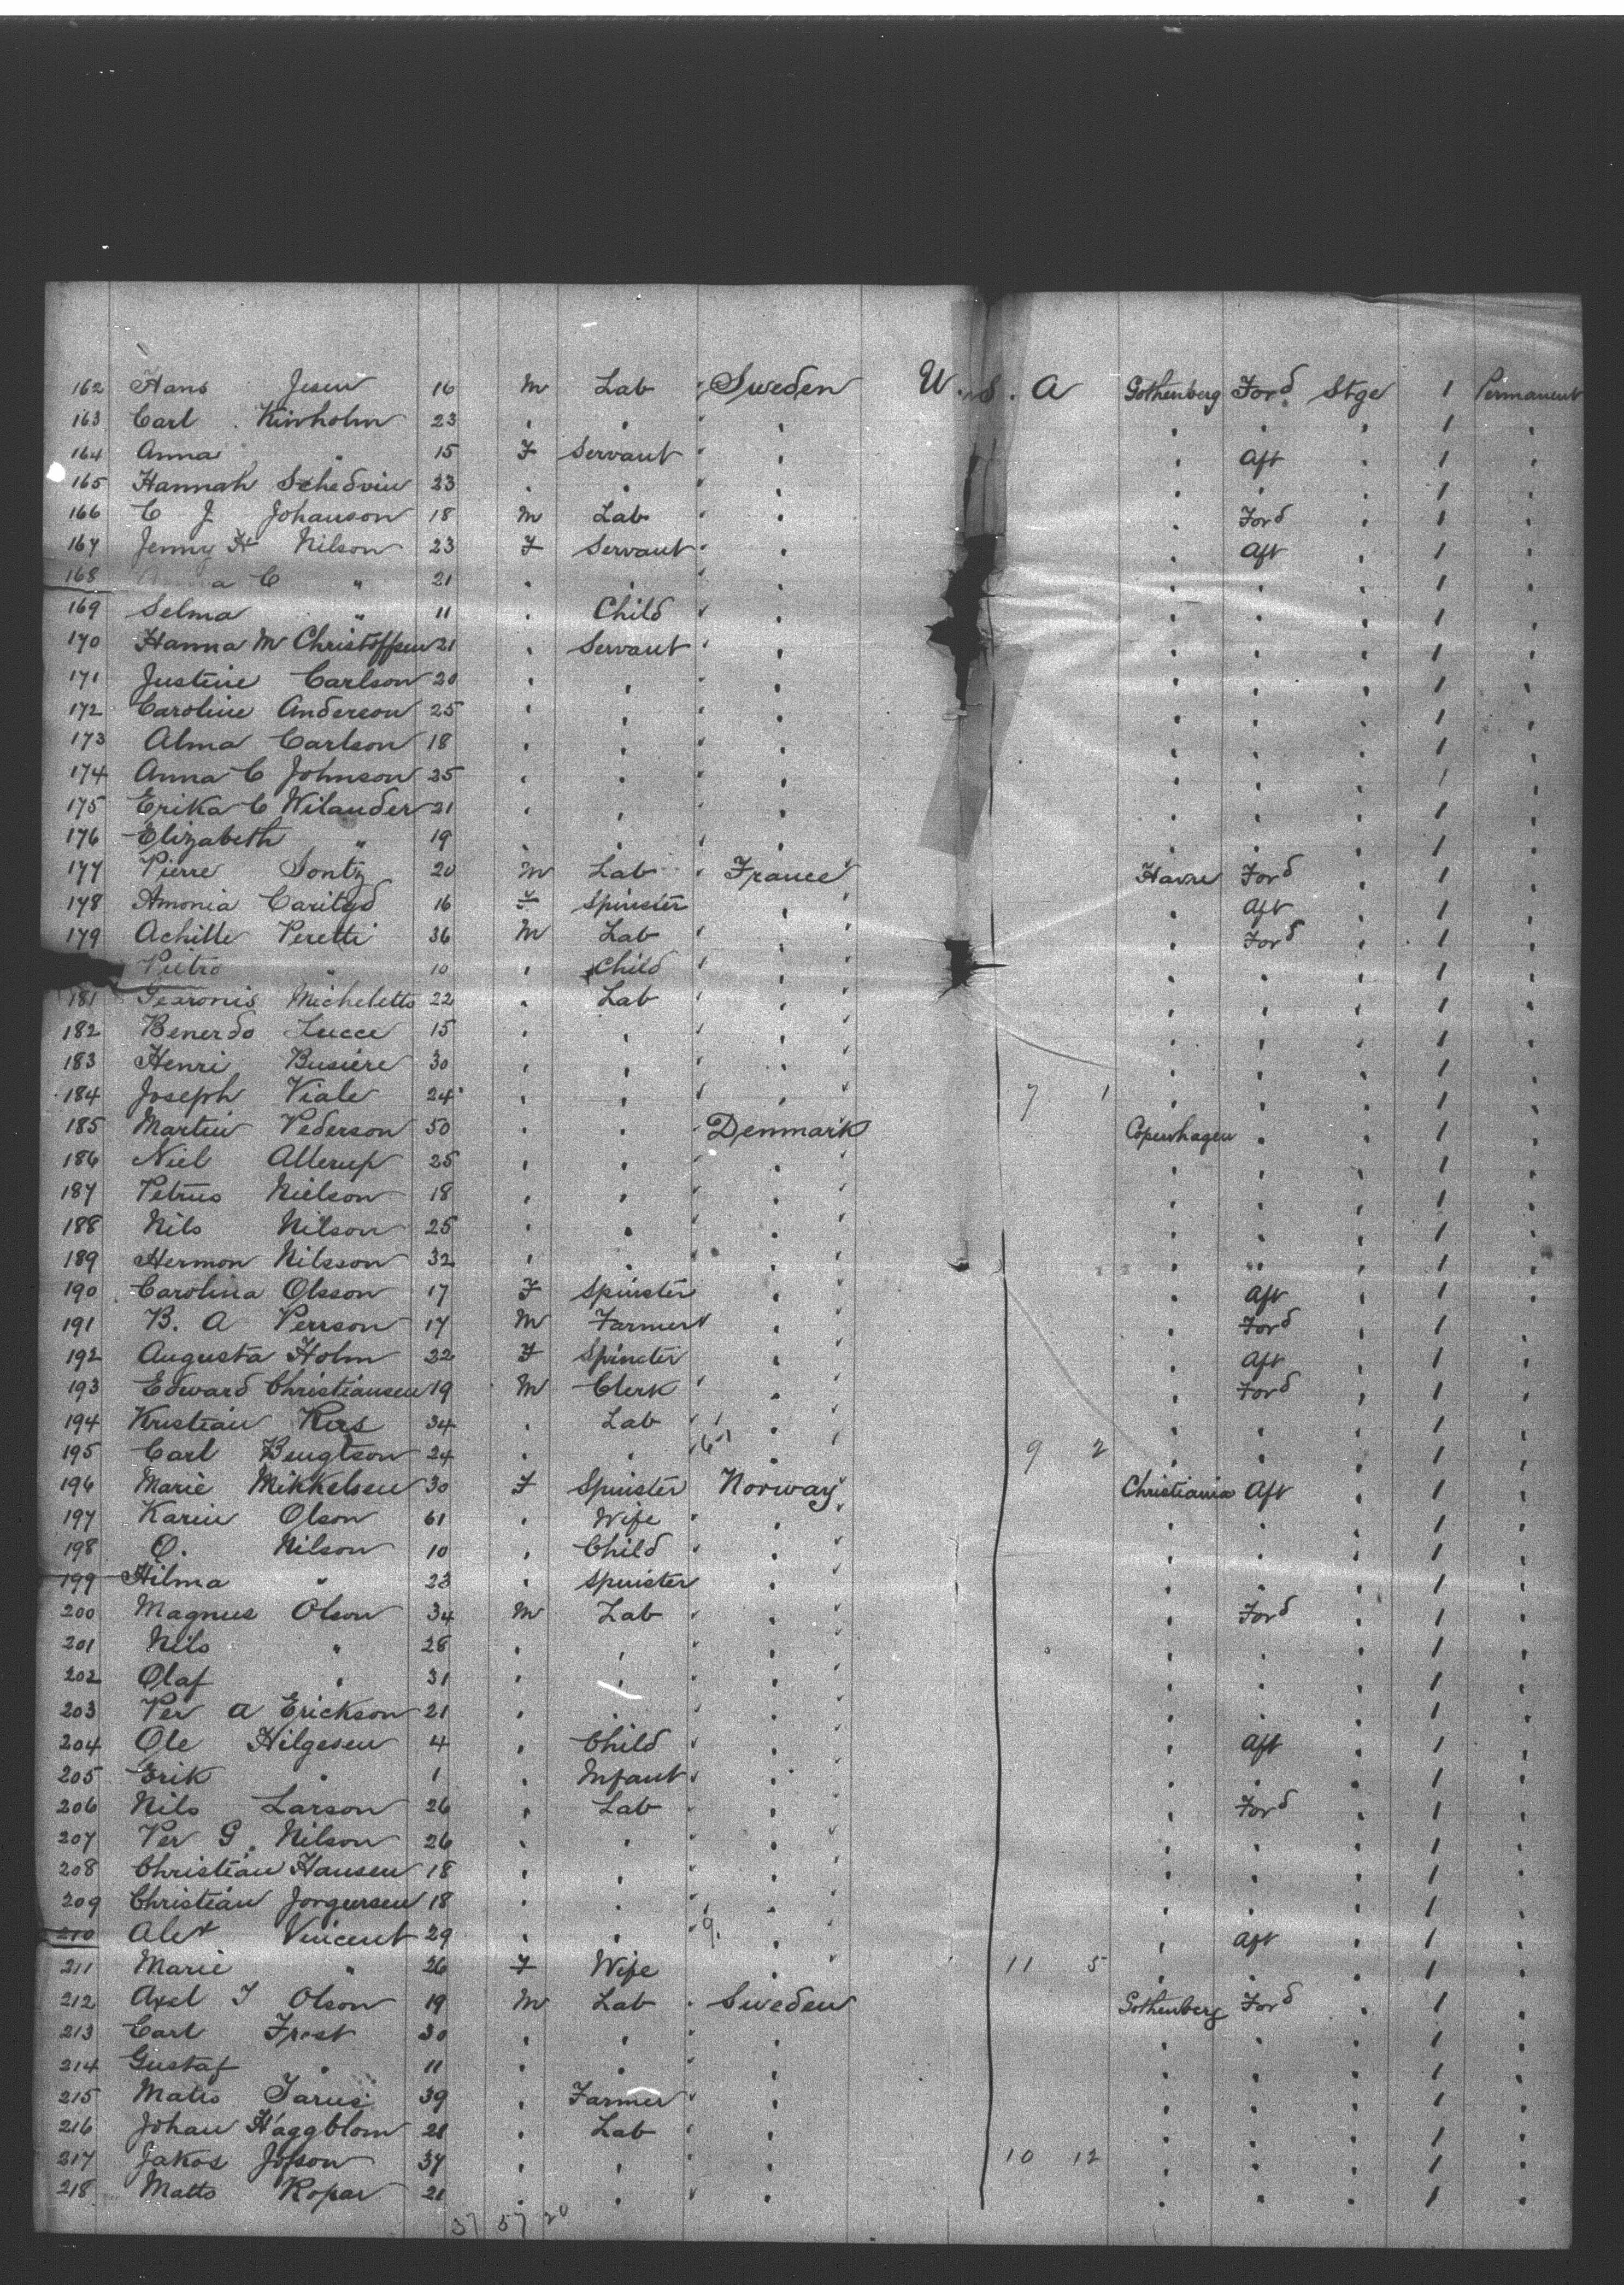 162 Hans Jesen 16 M Lab " Sweden U.S.A Gothenberg Ford Stge 1 Permanent
163 Carl Kinholm 23 " " " " " " " 1 "
164 Anna " 15 F Servant " " " Aft " 1 "
165 Hannah Schedvin 23 " " " " " " " 1 "
166 C J Johanson 18 M Lab " " " Ford " 1 "
167 Jenny H Nilson 23 F Servant " " " Aft " 1 "
168 a C " 21 " " " " " " " 1 "
169 Selma " 11 " Child " " " " " 1 "
170 Hanna M Christoffsen 21 " Servant " " " " " 1 "
171 Justine Carlson 20 " " " " " " " 1 "
172 Caroline Anderson 25 " " " " " " " 1 "
173 Alma Carlson 18 " " " " " " " 1 "
174 Anna C Johnson 25 " " " " " " " 1 "
175 Erika C Wilander 21 " " " " " " " 1 "
176 Elizabeth " 19 " " " " " " " 1 "
177 Pierre Sontz 20 M Lab " France " Havre Ford " 1 "
178 Amonia Caritgd 16 F Spinster " " " Aft " 1 "
179 Achille Peretti 36 M Lab " " " " Ford " 1 "
Pietro " 10 " Child " " " " " " 1 "
181 Micheletto 22 " Lab " " " " " " 1 "
182 Benerdo Lucce 15 " " " " " " " " 1 "
183 Henri Busiere 30 " " " " " " " " 1 "
184 Joseph Viale 24 " " " " " 7 1 " " " 1 "
185 Martin Pederson 50 " " " Denmark Copenhagen " " 1 "
186 Niel Allerup 25 " " " " " " " " 1 "
187 Petrus Nielson 18 " " " " " " " " 1 "
188 Nils Nilson 25 " " " " " " " " 1 "
189 Hermon Nilsson 32 " " " " " " " " 1 "
190 Carolina Olsson 17 F Spinster " " " Aft " 1 "
191 B. A Perrson 17 M Farmer " " " " Ford " 1 "
192 Augusta Holm 22 F Spinster " " " Aft " 1 "
193 Edward Christiansen 19 M Clerk " " " " Ford " 1 "
194 Kristian Kus 34 " Lab " " " " " " 1 "
195 Carl Bengtson 24 " " " " " 9 2 " " " 1 "
196 Marie Mikkelsen 30 F Spinster Norway " Christiania Aft " 1 "
197 Karin Olson 61 " Wife " " " " " " 1 "
198 O. Nilson 10 " Child " " " " " " 1 "
199 Hilma " 23 " Spinster " " " " " 1 "
200 Magnus Olson 34 M Lab " " " " Ford " 1 "
201 Nils " 28 " " " " " " " " 1 "
202 Olaf " 31 " " " " " " " " 1 "
203 Per A Erickson 21 " " " " " " " " 1 "
204 Ole Hilgesen 4 " Child " " " " Aft " 1 "
205 Erik " 1 " Infant " " " " " " 1 "
206 Nils Larson 26 " Lab " " " " Ford " 1 "
207 Per G. Nilson 26 " " " " " " " " 1 "
208 Christian Hansen 18 " " " " " " " " 1 "
209 Christian Jorgensen 18 " " " " " " " " 1 "
210 Alex Vincent 29 " " " 9. " " " Aft " 1 "
211 Marie " 26 F Wife " " 11 5 " " " 1 "
212 Axel J Olson 19 M Lab " Sweden Gothenberg Ford " 1 "
213 Carl Frost 30 " " " " " " " 1 "
214 Gustaf " 11 " " " " " " " 1 "
215 Mats Jarus 39 " Farmer " " " " " 1 "
216 Johan Haggblom 21 " Lab " " " " " 1 "
217 Jakos Jofson 37 " " " " 10 12 " " " 1 "
218 Matts Ropar 21 " " " " " " " 1 "
37 57 20